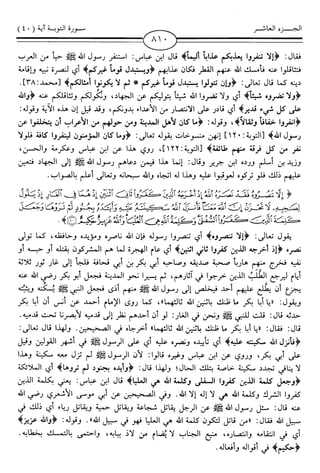 الجزء العاشر
سورة التوبة آية (٤٠)
٨١٠
فقال: ﴿إلا تنفروا يعذبكم عذاباً أليماً﴾ قال ابن عباس: استنفر رسول الله ﷺ حياً من العرب
فتثاقلوا عنه فأمسك الله عنهم القطر فكان عذابهم ﴿ويستبدل قوماً غيركم﴾ أي لنصرة نبيه وإقامة
دينه كما قال تعالى: ﴿وإن تتولوا يستبدل قوماً غيركم * ثم لا يكونوا أمثالكم﴾ [محمد: ٣٨].
﴿ولا تضروه شيئاً﴾ أي ولا تضروا الله شيئاً بتوليكم عن الجهاد، ونكولكم وتثاقلكم عنه ﴿والله
على كل شيء قدير﴾ أي قادر على الانتصار من الأعداء بدونكم، وقد قيل إن هذه الآية وقوله:
﴿انفروا خفافاً وثقالاً﴾، وقوله: ﴿ما كان لأهل المدينة ومن حولهم من الأعراب أن يتخلفوا عن
رسول الله﴾ [التوبة: ١٢٠] إنهن منسوخات بقوله تعالى: ﴿وما كان المؤمنون لينفروا كافة فلولا
نفر من كل فرقة منهم طائفة﴾ [التوبة: ١٢٢]، روي هذا عن ابن عباس وعكرمة والحسن،
وزيد بن أسلم ورده ابن جرير وقال: إنما هذا فيمن دعاهم رسول الله ﷺ إلى الجهاد فتعين
عليهم ذلك فلو تركوه لعوقبوا عليه وهذا له اتجاه والله سبحانه وتعالى أعلم بالصواب.
إِلَّا تَنصُرُوهُ فَقَدْ نَصَرَهُ اللَّهُ إِذْ أَخْرَجَهُ الَّذِينَ كَفَرُوا ثَانِيَ اثْنَيْنِ إِذْ هُمَا فِي الْغَارِ إِذْ يَقُولُ
لِصَاحِبِهِ لَا تَحْزَنْ إِنَّ اللَّهَ مَعَنَا فَأَنزَلَ اللَّهُ سَكِينَتَهُ عَلَيْهِ وَأَيَّدَهُ بِجُنُودٍ لَّمْ تَرَوْهَا وَجَعَلَ
كَلِمَةَ الَّذِينَ كَفَرُوا السُّفْلَىٰ وَكَلِمَةُ اللَّهِ هِيَ الْعُلْيَا وَاللَّهُ عَزِيزٌ حَكِيمٌ
يقول تعالى: ﴿إلا تنصروه﴾ أي تنصروا رسوله فإن الله ناصره ومؤيده وحافظه، كما تولى
نصره ﴿إذ أخرجه الذين كفروا ثاني اثنين﴾ أي عام الهجرة لما هم المشركون بقتله أو حبسه أو
نفيه فخرج منهم هارباً صحبة صديقه وصاحبه أبي بكر بن أبي قحافة فلجأ إلى غار ثور ثلاثة
أيام ليرجع الطلب الذين خرجوا في آثارهم، ثم يسيرا نحو المدينة فجعل أبو بكر رضي الله عنه
يجزع أن يطلع عليهم أحد فيخلص إلى رسول الله ﷺ منهم أذى فجعل النبي ﷺ يسكنه ويثبته.
ويقول: «يا أبا بكر ما ظنك باثنين الله ثالثهما»، كما روى الإمام أحمد عن أنس أن أبا بكر
حدثه قال: قلت للنبي ﷺ ونحن في الغار: لو أن أحدهم نظر إلى قدميه لأبصرنا تحت قدميه.
قال: فقال: «يا أبا بكر ما ظنك باثنين الله ثالثهما» أخرجاه في الصحيحين. ولهذا قال تعالى:
﴿فأنزل الله سكينته عليه﴾ أي تأييده ونصره عليه أي على الرسول ﷺ في أشهر القولين وقيل
على أبي بكر، وروي عن ابن عباس وغيره قالوا: لأن الرسول ﷺ لم تزل معه سكينة وهذا
لا ينافي تجدد سكينة خاصة بتلك الحال؛ ولهذا قال: ﴿وأيده بجنود لم تروها﴾ أي الملائكة
﴿وجعل كلمة الذين كفروا السفلى وكلمة الله هي العليا﴾ قال ابن عباس: يعني بكلمة الذين
كفروا الشرك وكلمة الله هي لا إله إلا الله. وفي الصحيحين عن أبي موسى الأشعري رضي الله
عنه قال: سئل رسول الله ﷺ عن الرجل يقاتل شجاعة ويقاتل حمية ويقاتل رياء أي ذلك في
سبيل الله فقال: «من قاتل لتكون كلمة الله هي العليا فهو في سبيل الله». وقوله: ﴿والله عزيز﴾
أي في انتقامه وانتصاره، منيع الجناب لا يُضام من لاذ ببابه، واحتمى بالتمسك بخطابه.
﴿حكيم﴾ في أقواله وأفعاله.